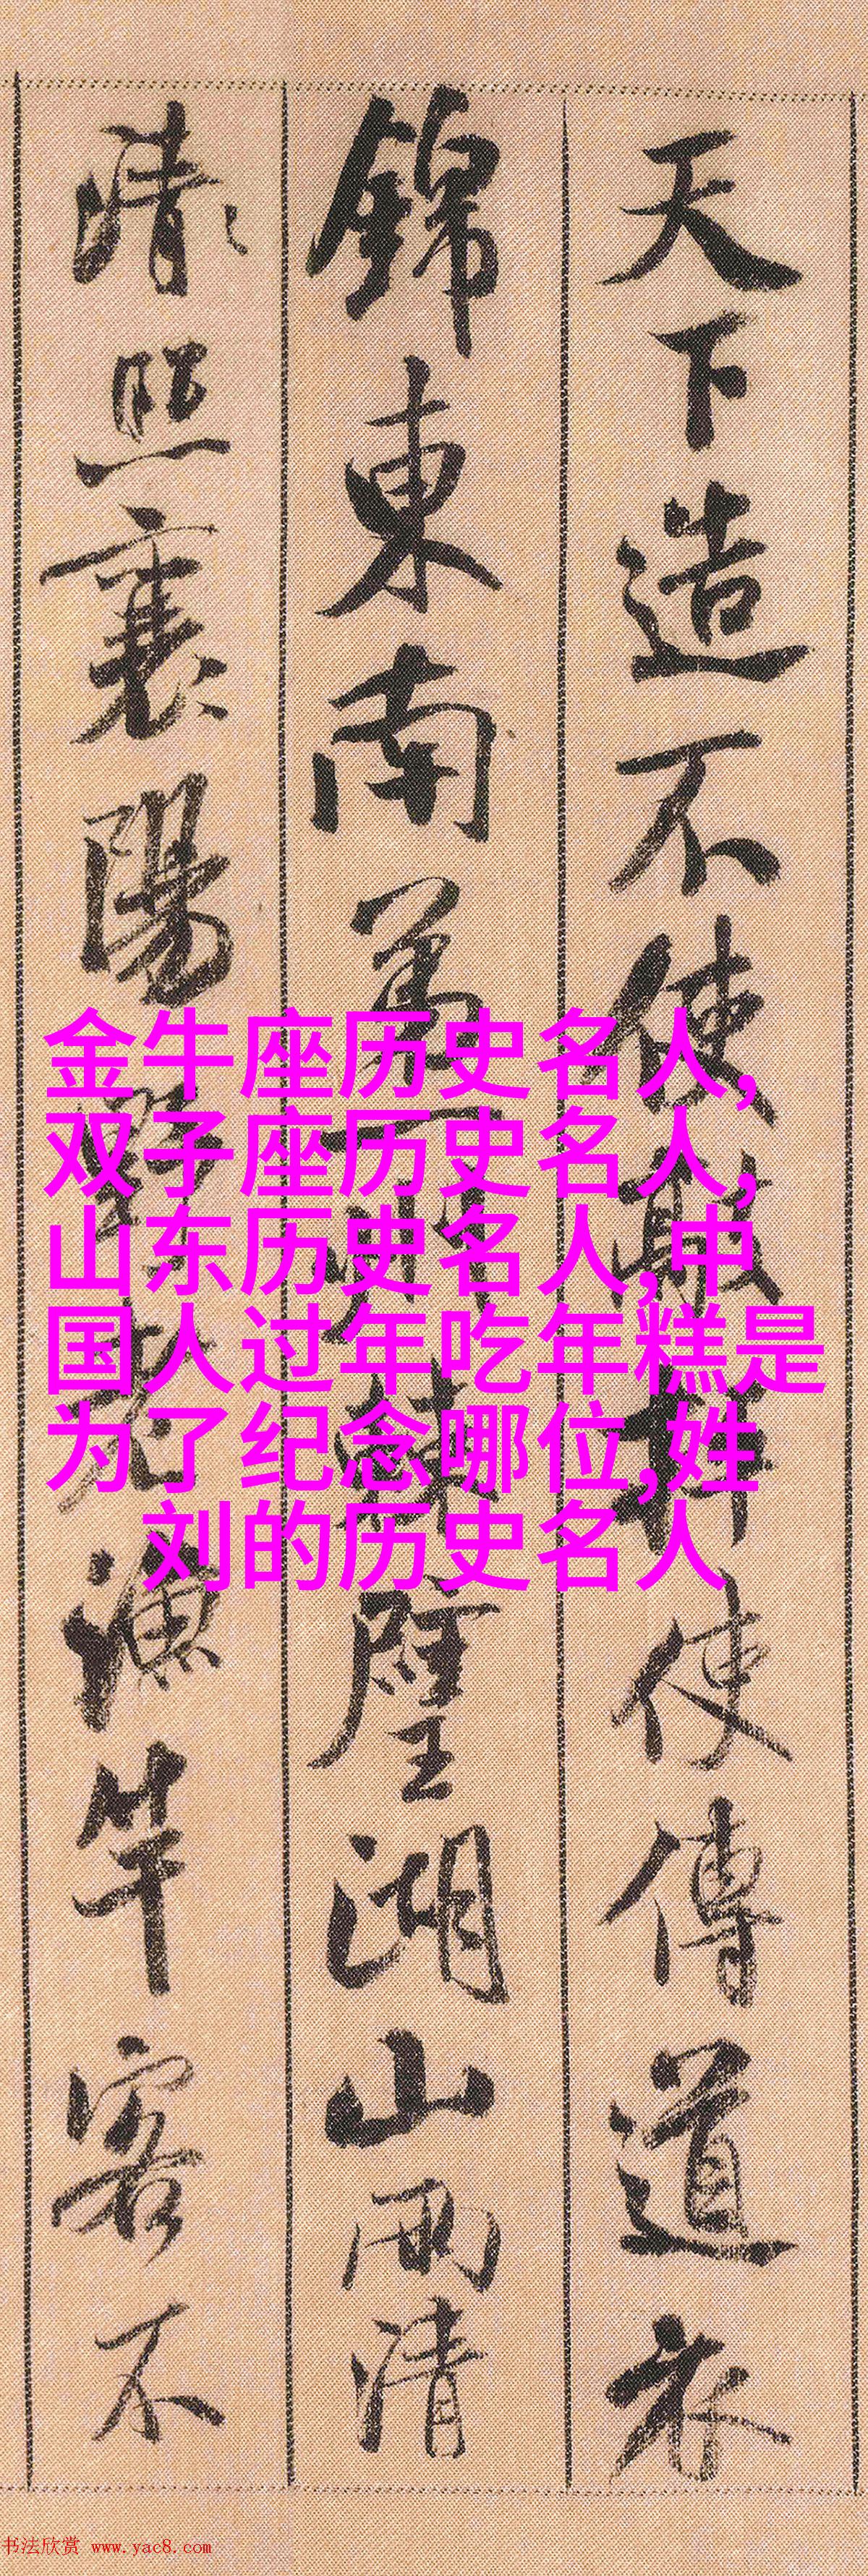 天下造不使敲枰使傳道衣
錦東南第一州棘璧湖山兩清
清照襄陽野老漁竿客不
金牛座历史名人,
双子座历史名人,
山东历史名人,中
国人过年吃年糕是
为了纪念哪位,姓
刘的历史名人
书法欣赏 www.yac8.com